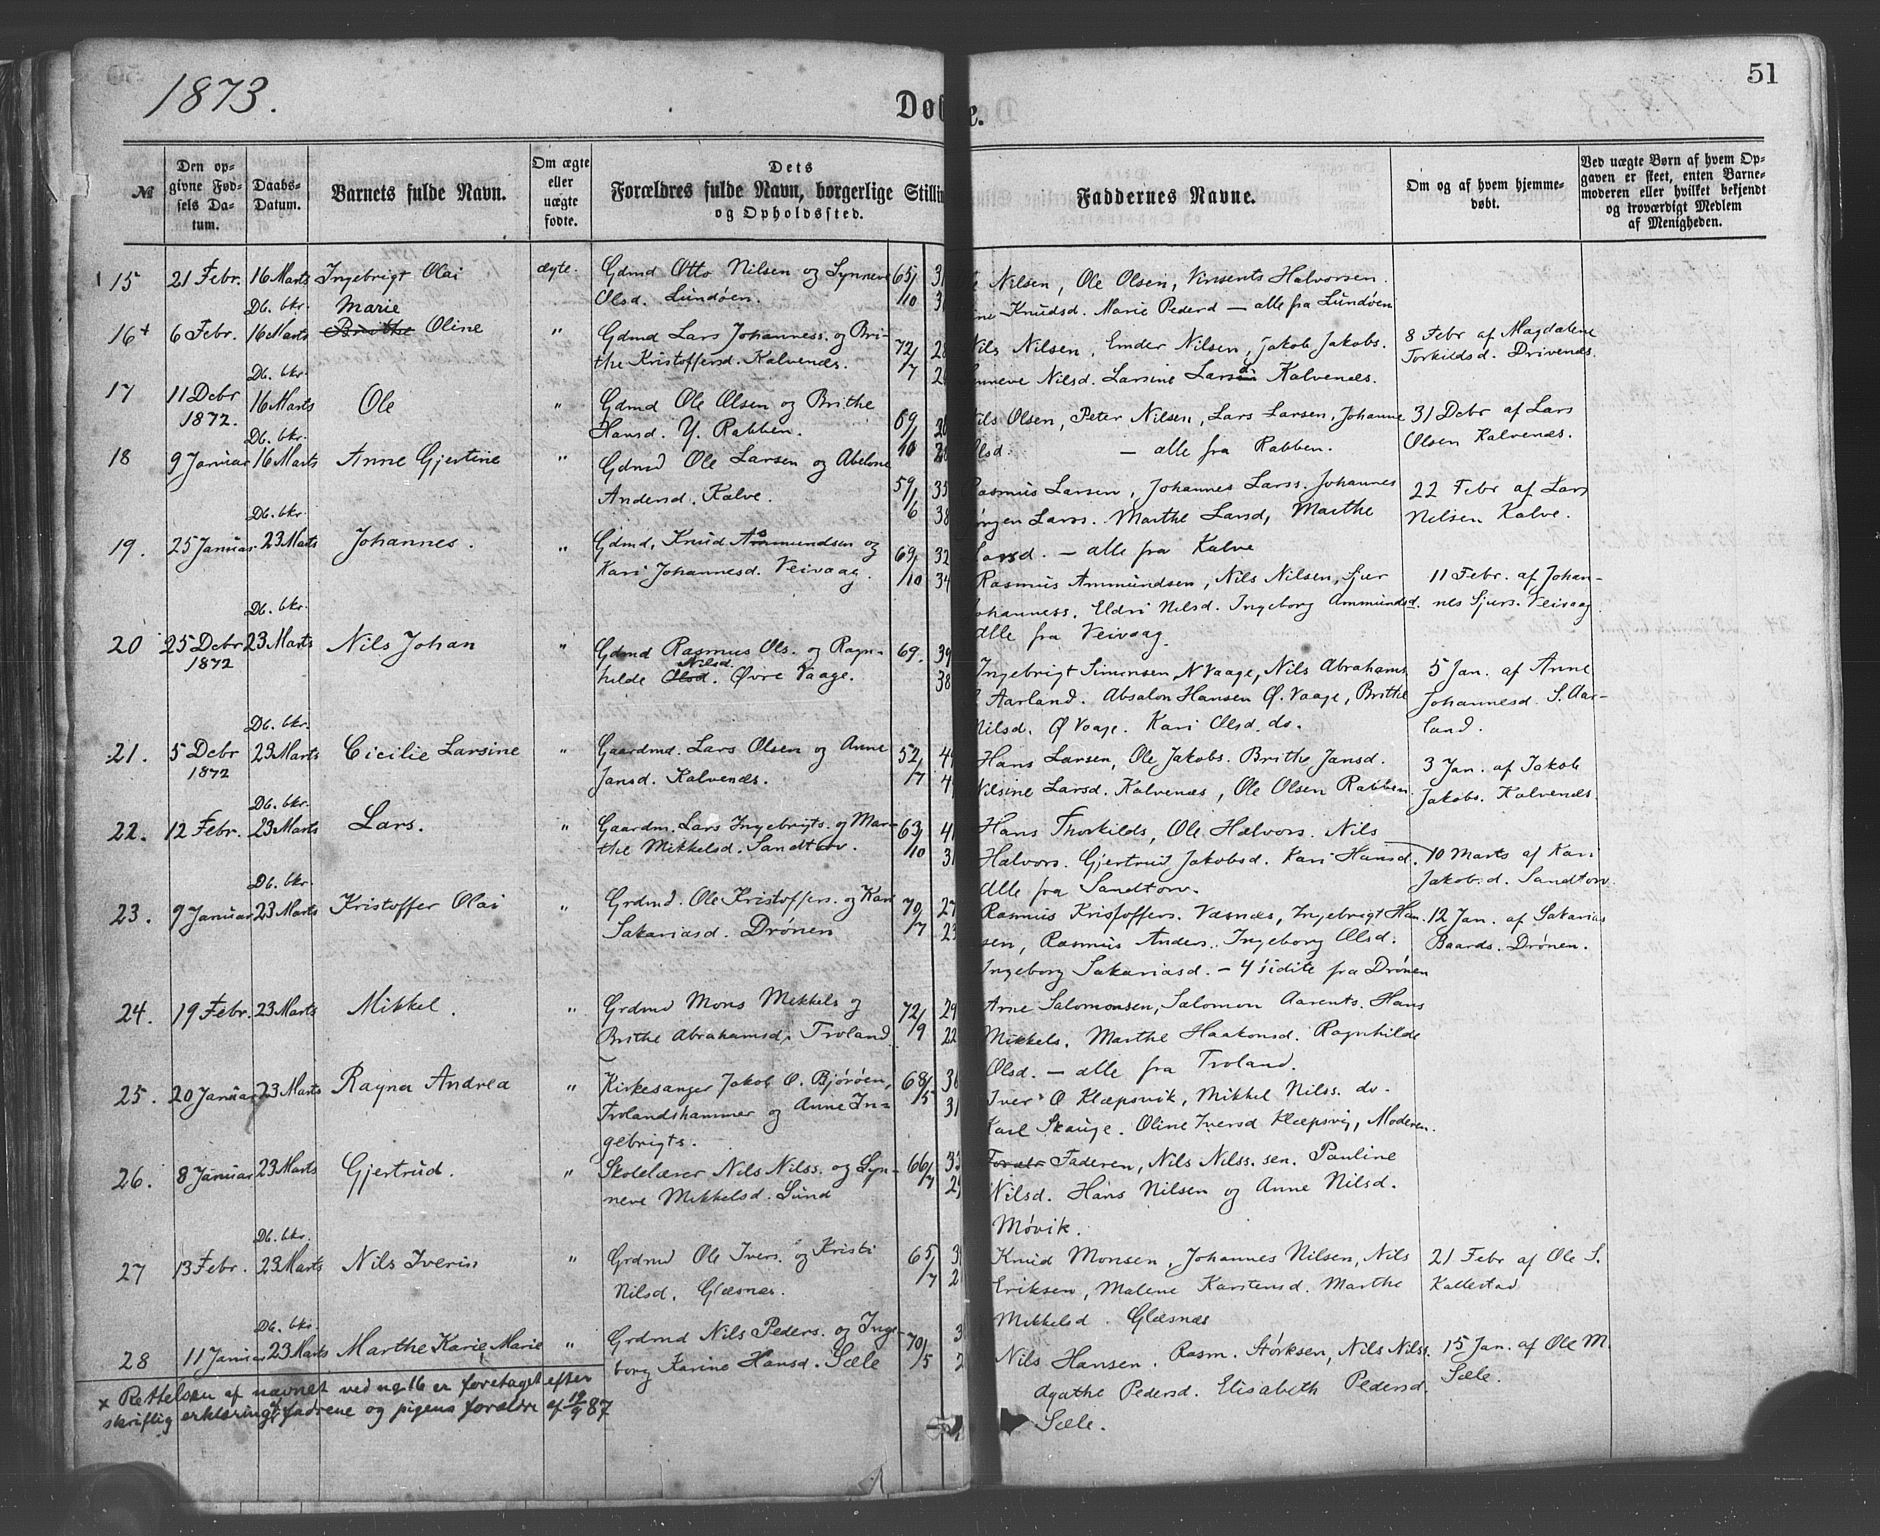 1873.
Døbte.
51
№
Den opgivne Fødsels Datum.
Daabs-Datum.
Barnets fulde Navn.
Om ægte eller uægte fødte.
Dets Forældres fulde Navn, borgerlige Stilling og Opholdssted.
Faddernes Navne.
Om og af hvem hjemmedøbt.
Ved uægte Børn af hvem Opgaven er skeet, enten Barnemoderen eller hvilket bekjendt og troværdigt Medlem af Menigheden.
15 21 Febr. 16 Marts Ingebrigt Olai ægte. Gdmd Otto Nilsen og Synneve 65/10 31
Olsd. Lundøen. 31
Nilsen, Ole Olsen, Vinsents Halvorsen.
Knudsd. Marie Pedersd — alle fra Lundøen
Db. bkr. Marie
16+ 6 Febr. 16 Marts Brithe Oline " Gdmd Lars Johanness. og Bri- 72/7 28
the Kristoffersd Kalvenæs.
Nils Nilsen, Emder Nilsen, Jakob Jakobs.
Synneve Nilsd. Larsine Larsd Kalvenæs.
8 Febr af Magdalene
Torkildsd. Drivenæs.
Db. bkr.
17 11 Debr 16 Marts Ole " Gdmd Ole Olsen og Brithe 69/10
1872. Hansd. Y. Rabben. 28
Nils Olsen, Peter Nilsen, Lars Larsen, Johanne
Olsd. — alle fra Rabben.
31 Debr af Lars
Olsen Kalvenæs.
Db. bkr.
18 9 Januar 16 Marts Anne Gjertine " Gdmd Ole Larsen og Abelone 59/6 35
Andersd. Kalve. 38
Rasmus Larsen, Johannes Larss. Johannes
Jørgen Larss. Marthe Larsd, Marthe
Larsd. — alle fra Kalve
22 Febr af Lars
Nelsen Kalve.
Db. bkr.
19. 25 Januar 23 Marts Johannes. " Gdmd. Knud Ammundsen og 69/10 32
Kari Johannesd. Veivaag. 34
Rasmus Ammundsen, Nils Nilsen, Sjur
Johanness. Eldri Nilsd. Ingeborg Ammundsd.
Alle fra Veivaag.
11 Febr. af Johan-
nes Sjurs. Veivaag
Db. bkr.
20 25 Debr 23 Marts Nils Johan " Gdmd Rasmus Ols. og Ragn- 69. 39
1872 hilde Olsd. Nilsd. Øvre Vaage. 38
Ingebrigt Simonsen N Vaage, Nils Abrahams.
Aarland. Absalon Hansen Ø. Vaage, Brithe
Nilsd. Ø Vaage. Kari Olsd. do.
5 Jan. af Anne
Johannesd. S. Aar-
land.
Db. bkr.
21. 5 Debr 23 Marts Cicilie Larsine " Gaardmd. Lars Olsen og Anne 52/7
1872 Jansd. Kalvenæs.
Hans Larsen, Ole Jakobs. Brithe Jansd.
Nilsine Larsd. Kalvenæs, Ole Olsen Rabben.
3 Jan. af Jakob
Jakobs. Kalvenæs.
Db. bkr.
22. 12 Febr. 23 Marts Lars. " Gaardm. Lars Ingebrigts. og Mar- 63/10
the Mikkelsd. Sandtorv.
Hans Thorkilds, Ole Halvors. Nils
Halvors. Gjertrud Jakobsd. Kari Hansd.
Alle fra Sandtorv.
10 Marts af Kari
Jakobsd. Sandtorv.
Db. bkr.
23. 9 Januar 23 Marts Kristoffer Olai " Grdmd. Ole Kristoffers. og Kari 70/7 27
Sakariasd. Drönen 23
Rasmus Kristoffers. Væsnæs, Ingebrigt Han-
sen, Rasmus Anders. Ingeborg Olsd.
Ingeborg Sakariasd. — 4 sidste fra Drönen
12 Jan. af Sakarias
Baards. Drönen.
24. 19 Febr. 23 Marts Mikkel. " Grdmd Mons Mikkels og 72/9 29
Brithe Abrahamsd. Troland 22
Arne Salomonsen, Salomon Aarents. Hans
Mikkels. Marthe Haakonsd. Ragnhilde
Olsd. — alle fra Troland.
25. 20 Januar 23 Marts Ragna Andrea " Kirkesanger Jakob O. Bjørøen, 68/5
Trolandshammer og Anne In-
gebrigts.
Iver O Klæpsvik, Mikkel Nilss. do.
Karl Skauge. Oline Iversd Klæpsvig, Moderen.
26. 8 Januar 23 Marts Gjertrud. " Skolelærer Nils Nilss. og Syn- 66/7
neve Mikkelsd. Sund
Faderen, Nils Nilss. sen. Pauline
Nilsd. Hans Nilsen og Anne Nilsd.
Møvik.
Db. bkr.
27 13 Febr. 23 Marts Nils Iverin " Grdmd Ole Ivers. og Kristi 65/7
Nilsd. Glæsnæs.
Knud Monsen, Johannes Nilsen, Nils
Eriksen, Malene Karstensd. Marthe
Mikkelsd. Glæsnæs
21 Febr af Ole S.
Kallestad
Db. bkr.
28 11 Januar 23 Marts Marthe Karie Marie " Grdmd Nils Peders. og Inge- 70/5
borg Karine Hansd. Sæle
Nils Hansen. Rasm. Størksen, Nils Nilss.
Agathe Pedersd. Elisabeth Pedersd.
Sæle.
15 Jan. af Ole M.
Sæle.
x Rettelsen af navnet ved no 16 er foretaget efter
skriftlig erklæring af fadrene og pigens forældre af 19/9 87